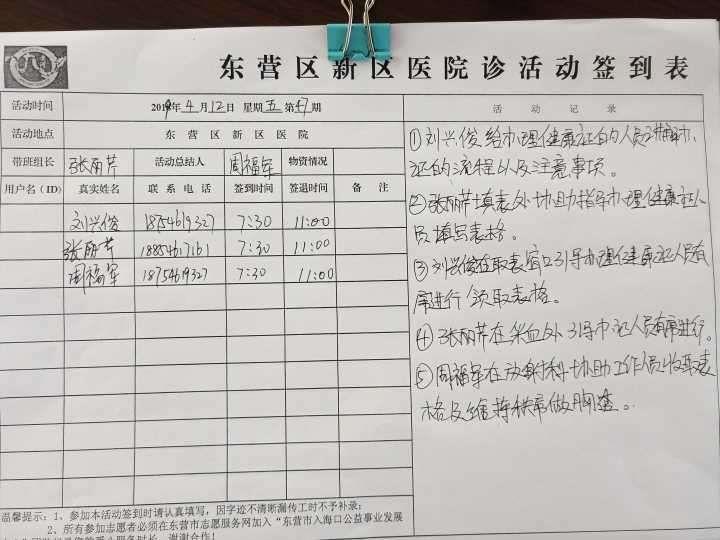 东营区新区医院诊活动签到表
活动时间 2019年4月12日 星期五 第47期 活动记录
活动地点 东营区新区医院
带班组长 张丽芹 活动总结人 周福军 物资情况
用户名(ID) 真实姓名 联系电话 签到时间 签退时间 备注
刘兴俊 18754619327 7:30 11:00
张丽芹 18854617161 7:30 11:00
周福军 18754619327 7:30 11:00
①刘兴俊给办理健康证的人员讲解办
证的流程以及注意事项。
②张丽芹填表处协助指导办理健康证人
员填写表格。
③刘兴俊在取表窗口引导办理健康证人员有
序进行领取表格。
④张丽芹在采血处引导办证人员有序进行。
⑤周福军在放射科协助工作人员收取表
格及维持秩序做胸透。
温馨提示:1、参加本活动签到时请认真填写,因字迹不清晰漏传工时不予补录;
2、所有参加志愿者必须在东营市志愿服务网加入“东营市入海口公益事业发展